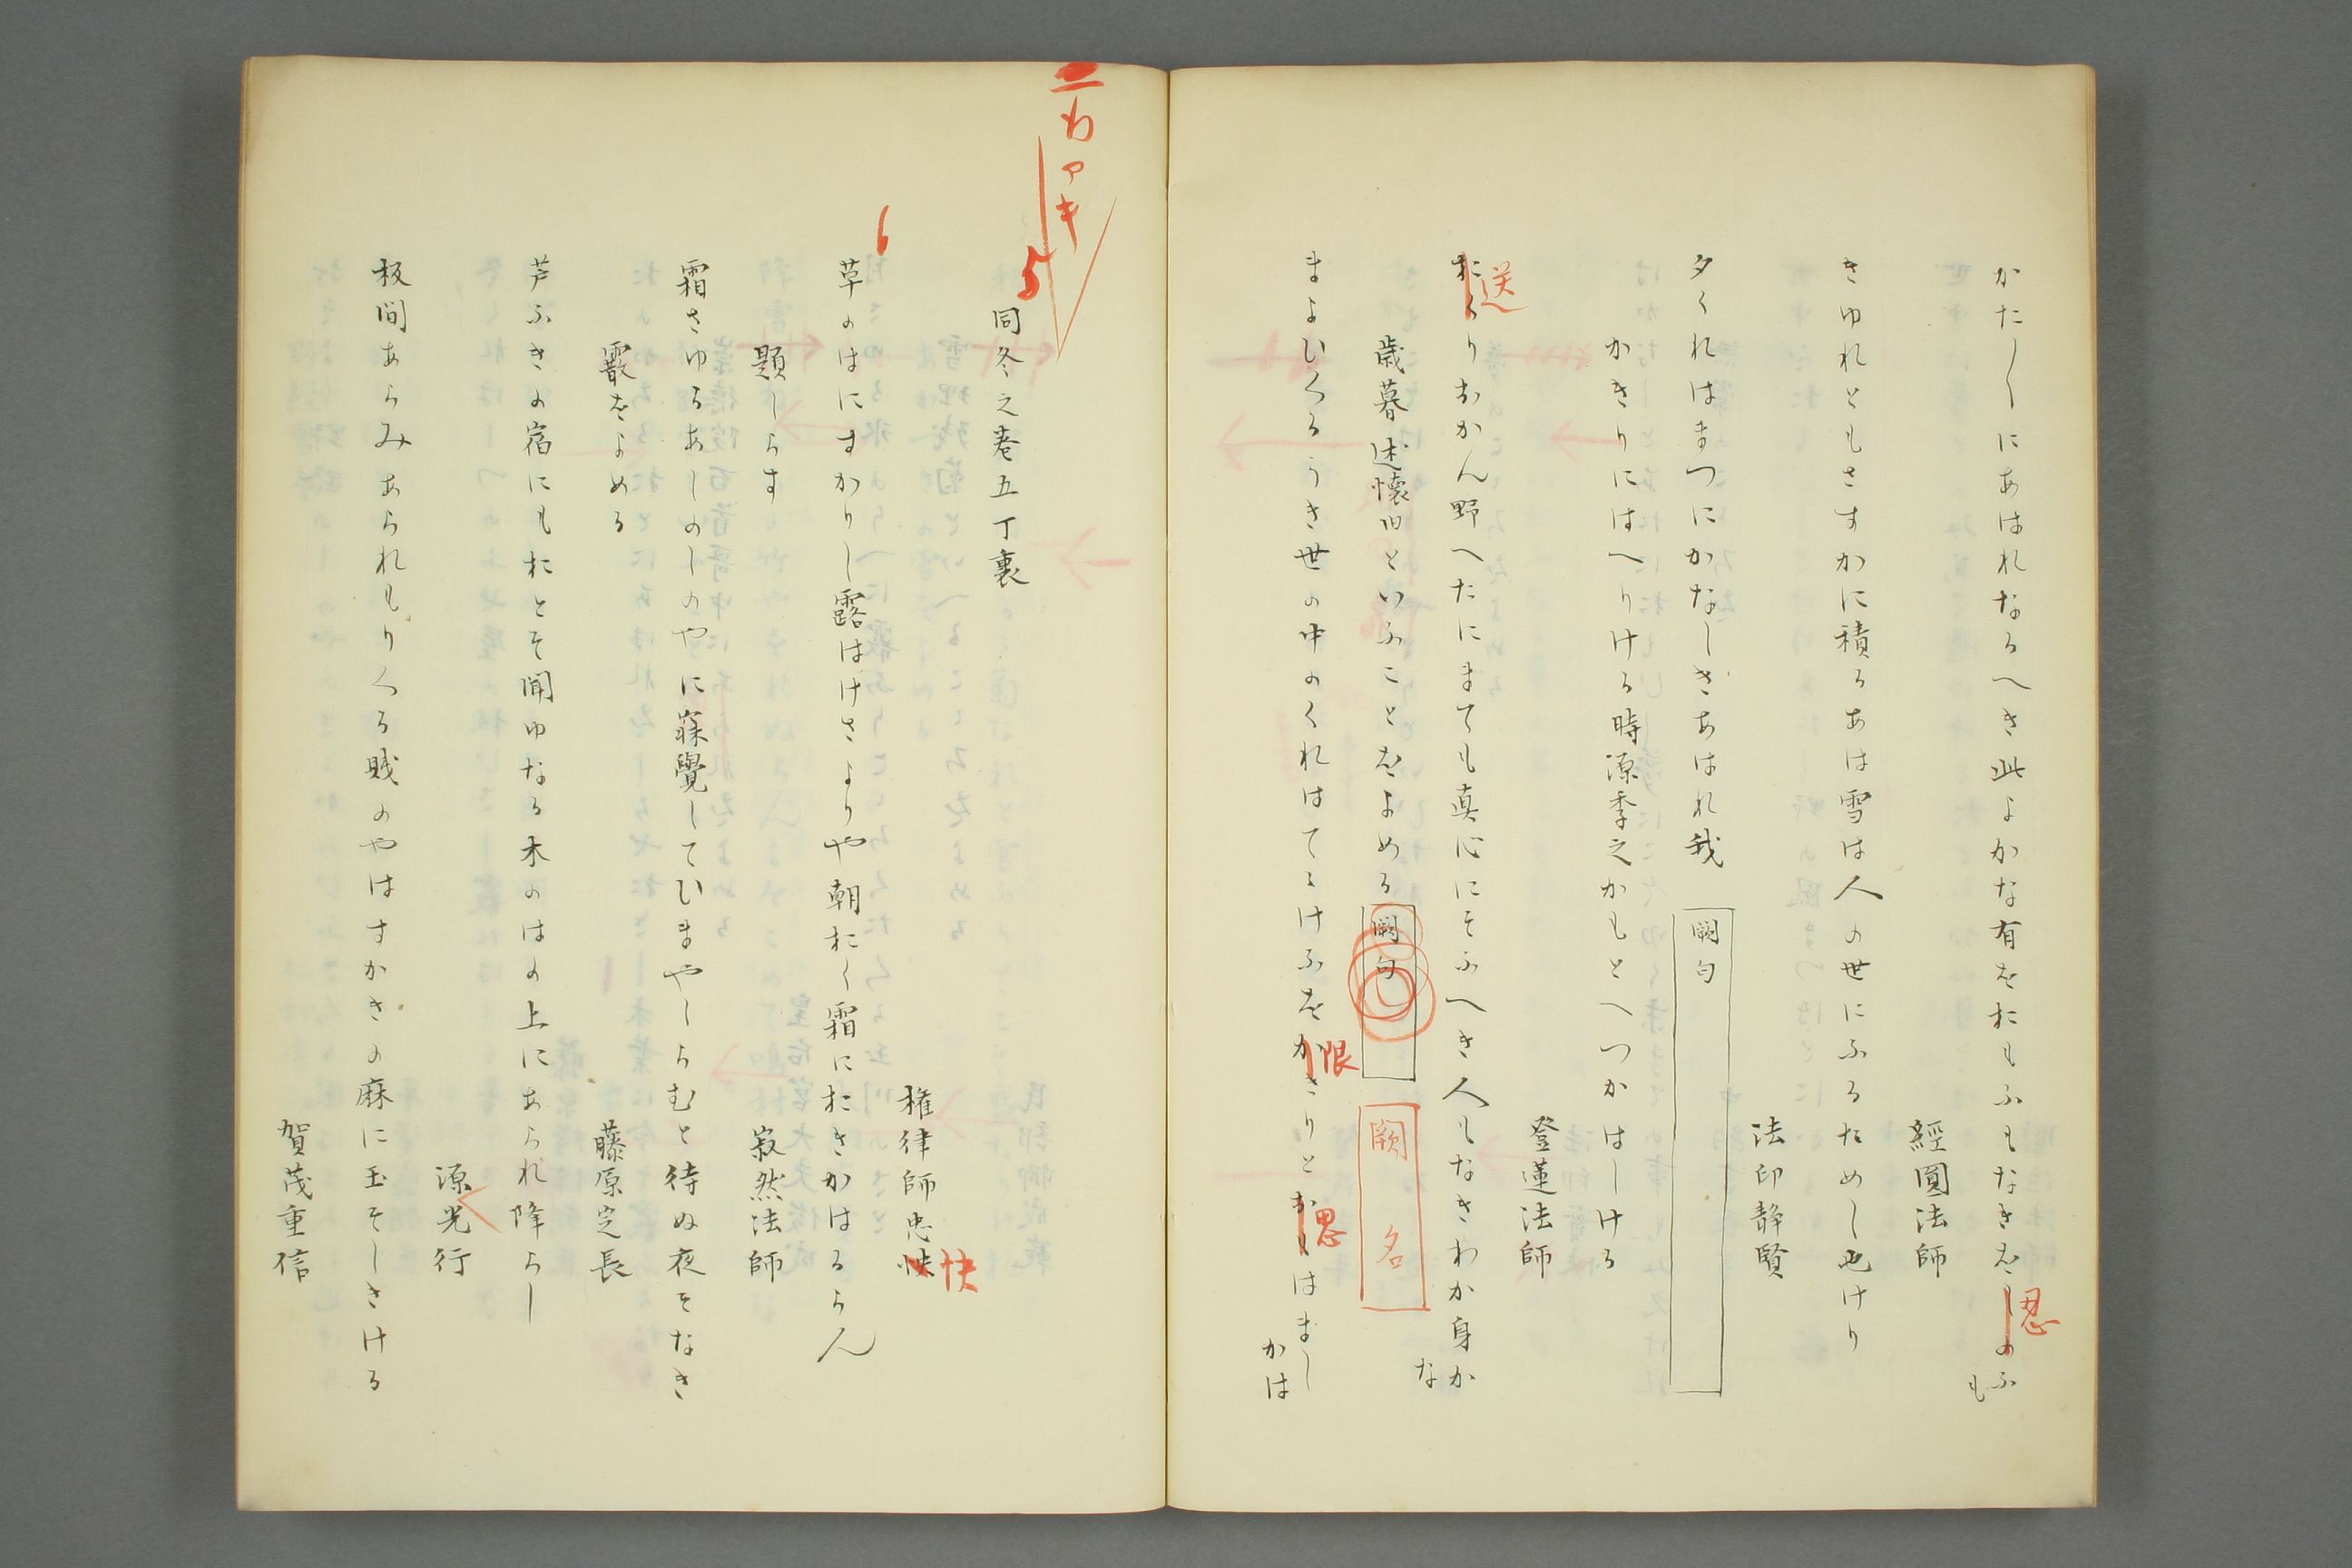 かた〳〵にあはれなるへき此よかな有をおもふもなきをしのふも
忍
經圓法師
きゆれともさすかに積るあは雪は人の世にふるためし也けり
法印静賢
夕くれはまつにかなしきあはれ我
闕句
かきりにはへりける時源季之かもとへつかはしける
登蓮法師
おくりおかん野へたにまても真心にそふへき人もなきわか身かな
送
歳暮述懐
といふことをよめる
闕句
闕名
まよひくるうき世の中のくれはてゝけふをかきりとおもはましかは
限
思
二わアキ
5
同冬之巻五丁裏
権律師忠快
快
6
草のはにすかりし露はけさよりや朝おく霜におきかはるらん
題しらす
寂然法師
霜さゆるあしのしのやに寐覺してひまやしらむと待ぬ夜そなき
霰をよめる
藤原定長
芦ふきの宿にもおとそ聞ゆなる木のはの上にあられ降らし
源光行
板間あらみあられもりくる賤のやはすかきの麻に玉そしきける
賀茂重信